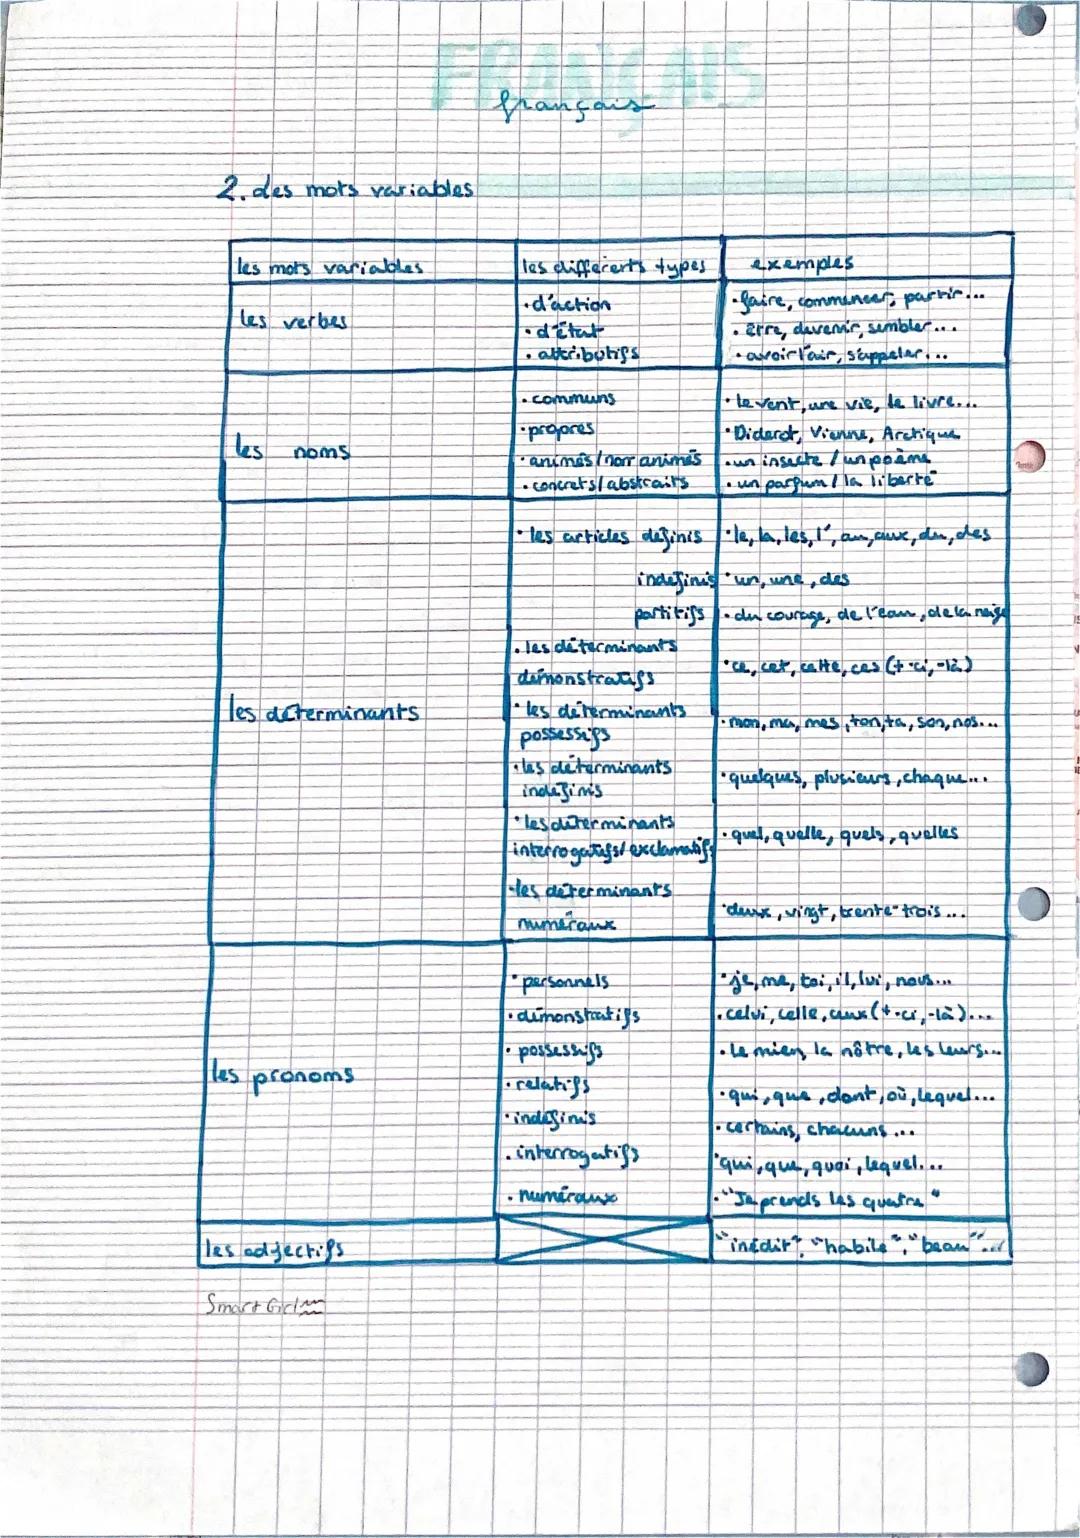 FRANÇAIS
français
2. des mots variables
les mots variables les différents types exemples
les verbes
• d'action • faire, commencer, partir...
• d'état • être, devenir, sembler...
• attributifs • avoir l'air, s'appeler...
les noms
• communs • le vent, une vie, le livre...
• propres • Diderot, Vienne, Arctique
• animés / non animés • un insecte / un poème
• concrets / abstraits • un parfum / la liberté
les déterminants
• les articles définis • le, la, les, l', au, aux, du, des
indéfinis • un, une, des
partitifs • du courage, de l'eau, de la neige
• les déterminants
démonstratifs • ce, cet, cette, ces (+ -ci, -là)
• les déterminants
possessifs • mon, ma, mes, ton, ta, son, nos...
• les déterminants
indéfinis • quelques, plusieurs, chaque...
• les déterminants
interrogatifs/exclamatifs • quel, quelle, quels, quelles
• les déterminants
numéraux • deux, vingt, trente-trois...
les pronoms
• personnels • je, me, toi, il, lui, nous...
• démonstratifs • celui, celle, ceux (+ -ci, -là)...
• possessifs • le mien, la nôtre, les leurs...
• relatifs • qui, que, dont, où, lequel...
• indéfinis • certains, chacuns...
• interrogatifs • qui, que, quoi, lequel...
• numéraux • "Je prends les quatre"
les adjectifs "inédit", "habile", "beau"...
Smart Girl